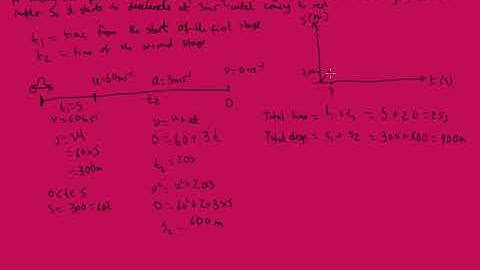 after 5s it starts to decelerate at 3ms⁻² until coming to rest
t₁ = time from the start of the first stage
t₂ = time of the second stage
u=60ms⁻¹ a=3ms⁻² v=0ms⁻¹
t₁=5 t₂ D
v=60ms⁻¹
s=vt
=60x5
=300m
0<t<5
s=300=60t
v=u+at
0=60+3t
t₂=20s
v²=u²+2as
0=60²+2x3xs
s₂=600m
s(m)
300
5
t(s)
Total time = t₁+t₂ = 5+20=25s
Total disp = s₁+s₂ = 300+600=900m